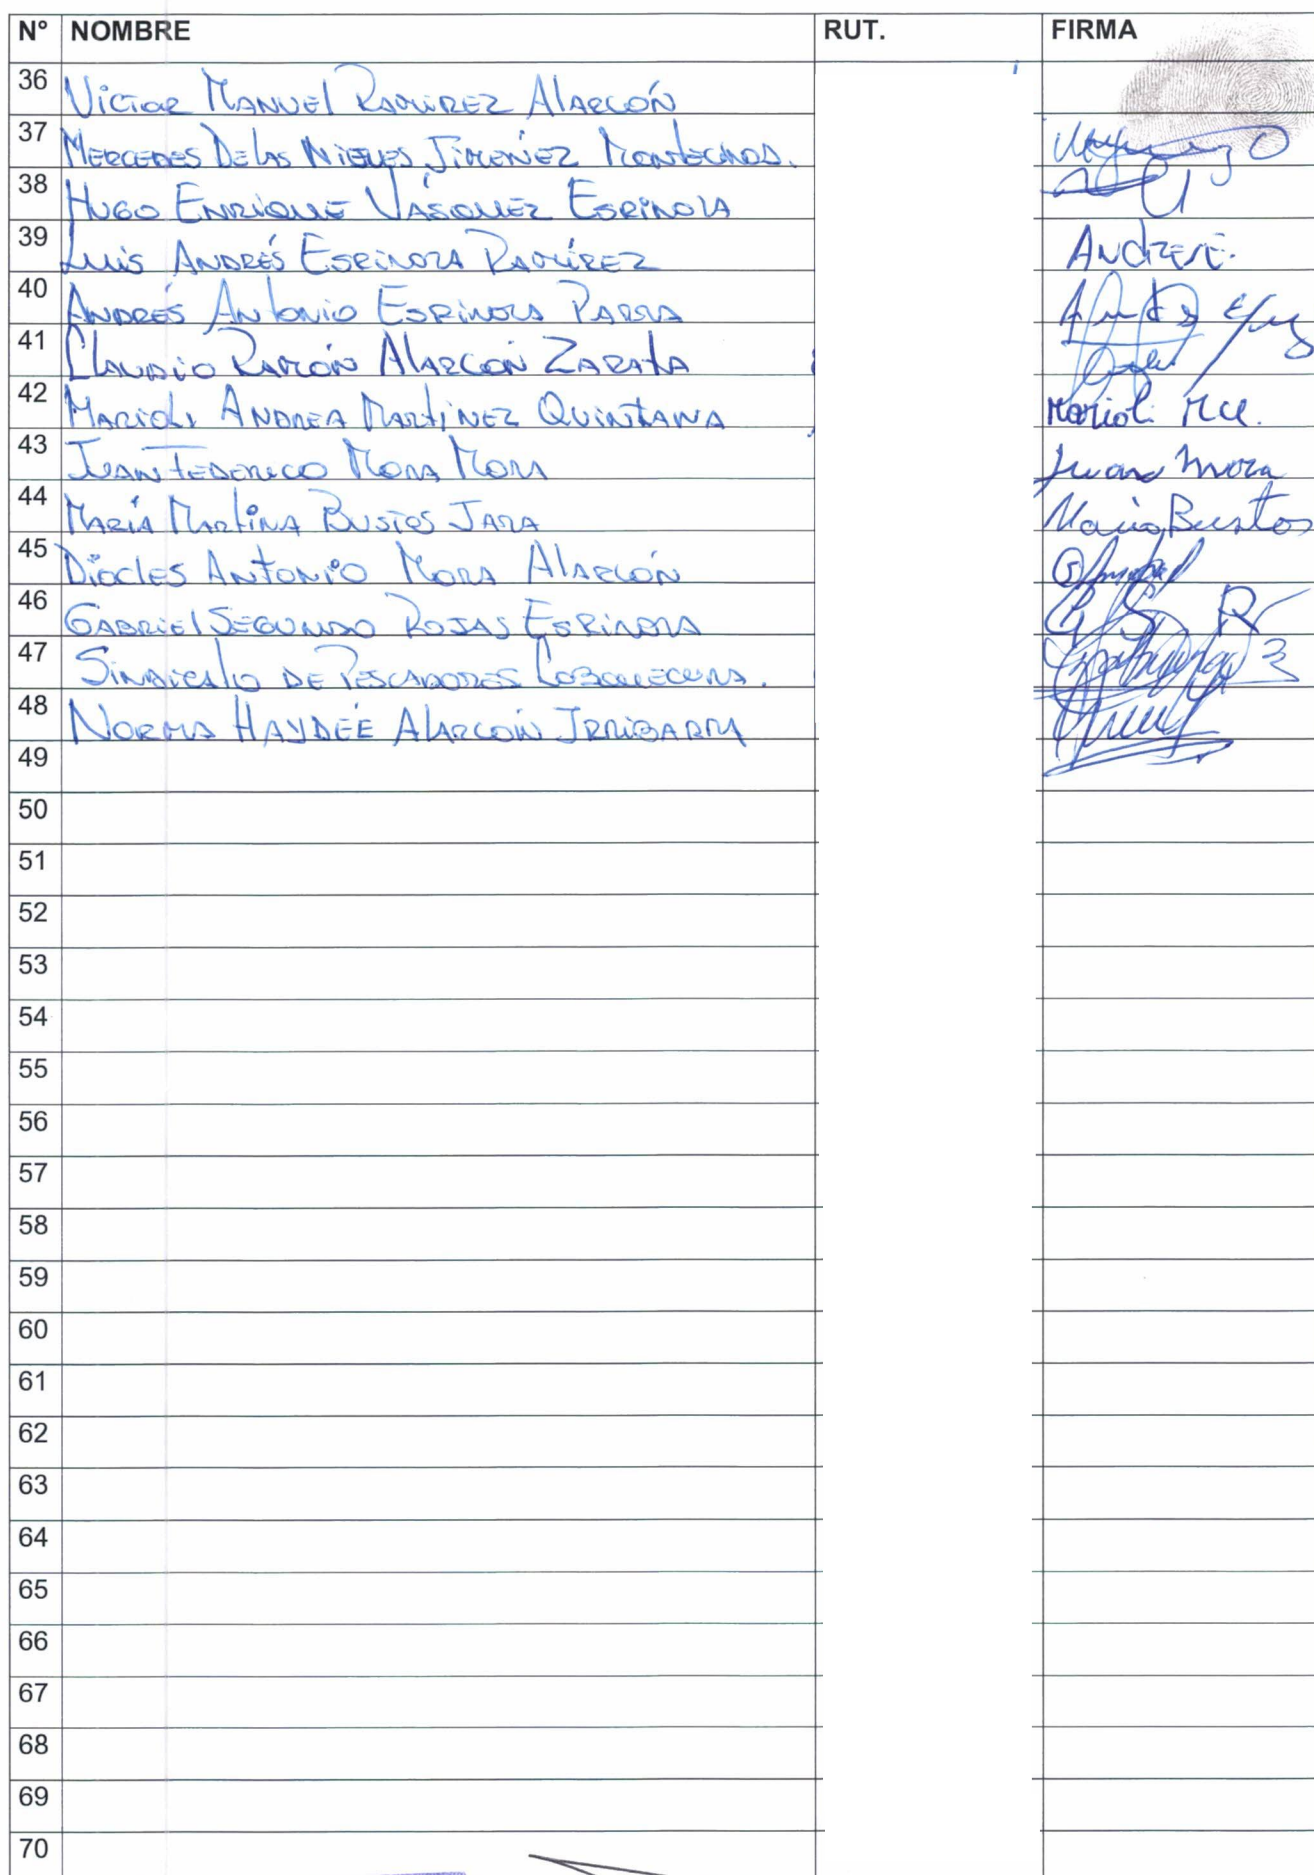 N° NOMBRE RUT. FIRMA
36 Victor Manuel Ramirez Alarcón
37 Mercedes Delas Nieves Jimenez Montecinos.
38 Hugo Enrique Vásquez Espinoza
39 Luis Andrés Espinoza Ramírez Andres E.
40 Andrés Antonio Espinoza Parra
41 Claudio Ramón Alarcón Zarata
42 Marioli Andrea Martinez Quintana Marioli
43 Juan Federico Mora Mora Juan Mora
44 María Martina Bustos Jara Maria Bustos
45 Diocles Antonio Mora Alarcón
46 Gabriel Segundo Rojas Espinoza G S R
47 Sindicato de Pescadores Cobquecura.
48 Norma Haydeé Alarcón Irribarra
49
50
51
52
53
54
55
56
57
58
59
60
61
62
63
64
65
66
67
68
69
70